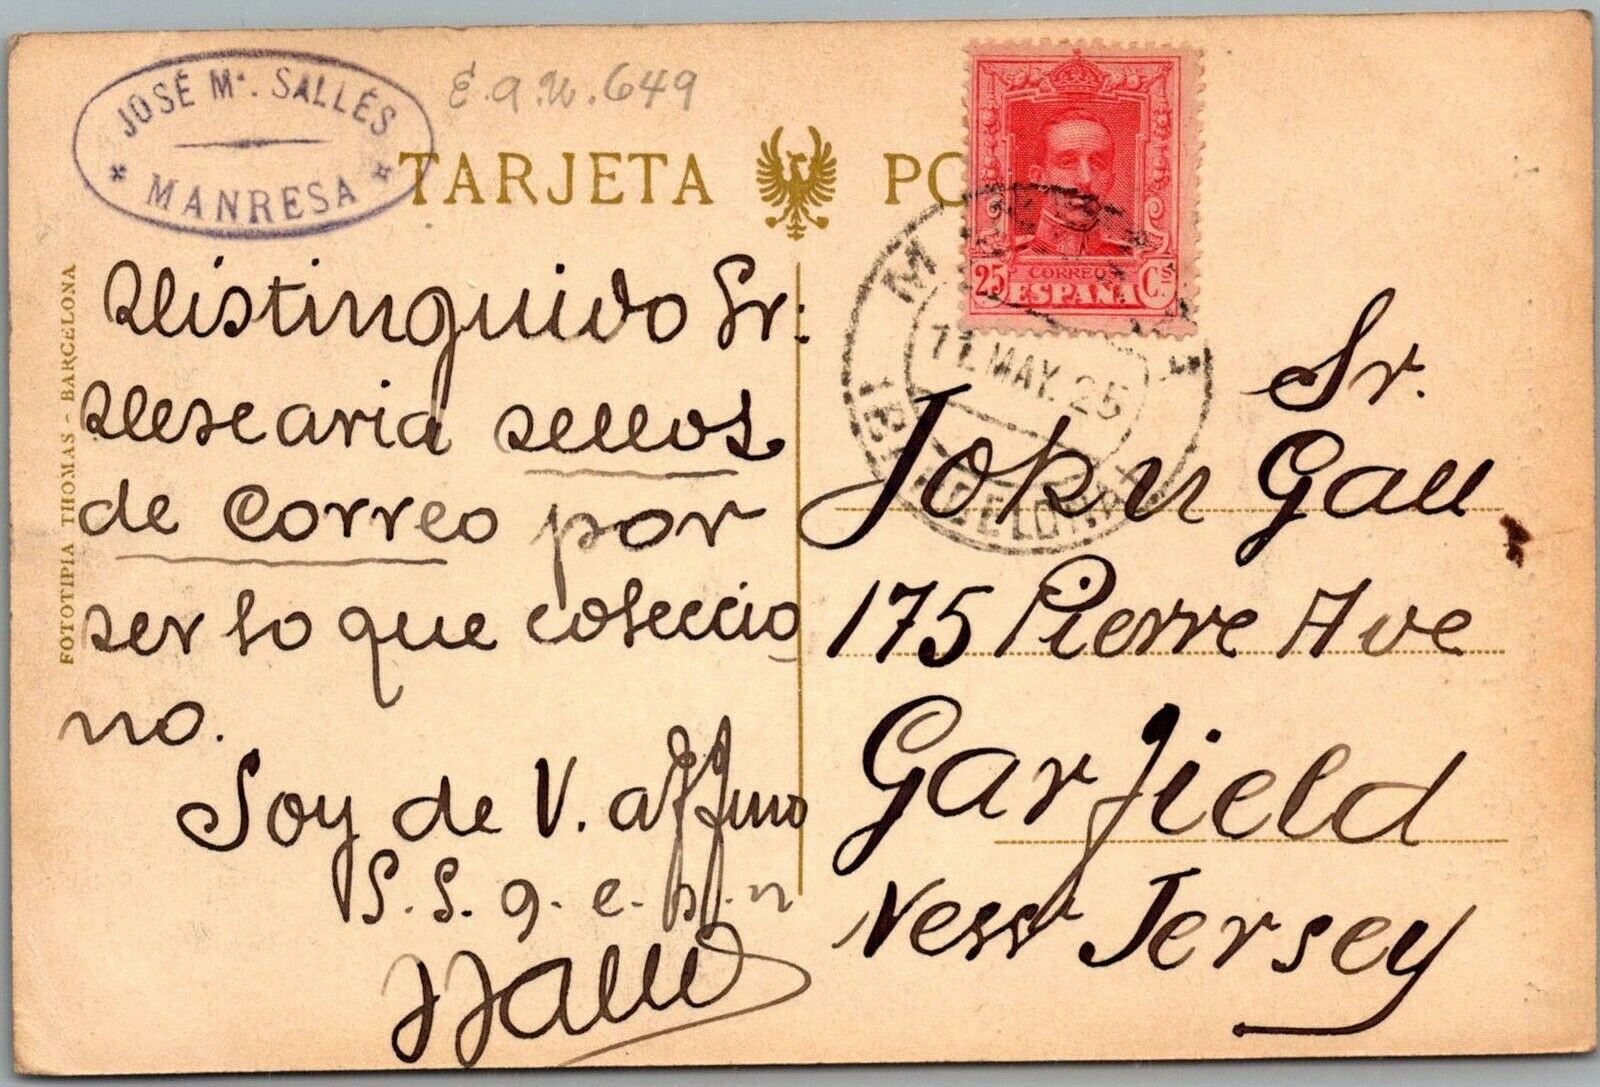 JOSÉ Mª. SALLÉS
MANRESA
E.a.u. 649
TARJETA PO
25 CORREOS Cs
ESPAÑA
MAY. 25
FOTOTIPIA THOMAS - BARCELONA
Distinguido Sr:
Desearia sellos
de correo por
ser lo que coleccio
no.
Soy de V. affmo
S.S. q. e. s. m
Sr.
John Gall
175 Pierre Ave
Garfield
New Jersey